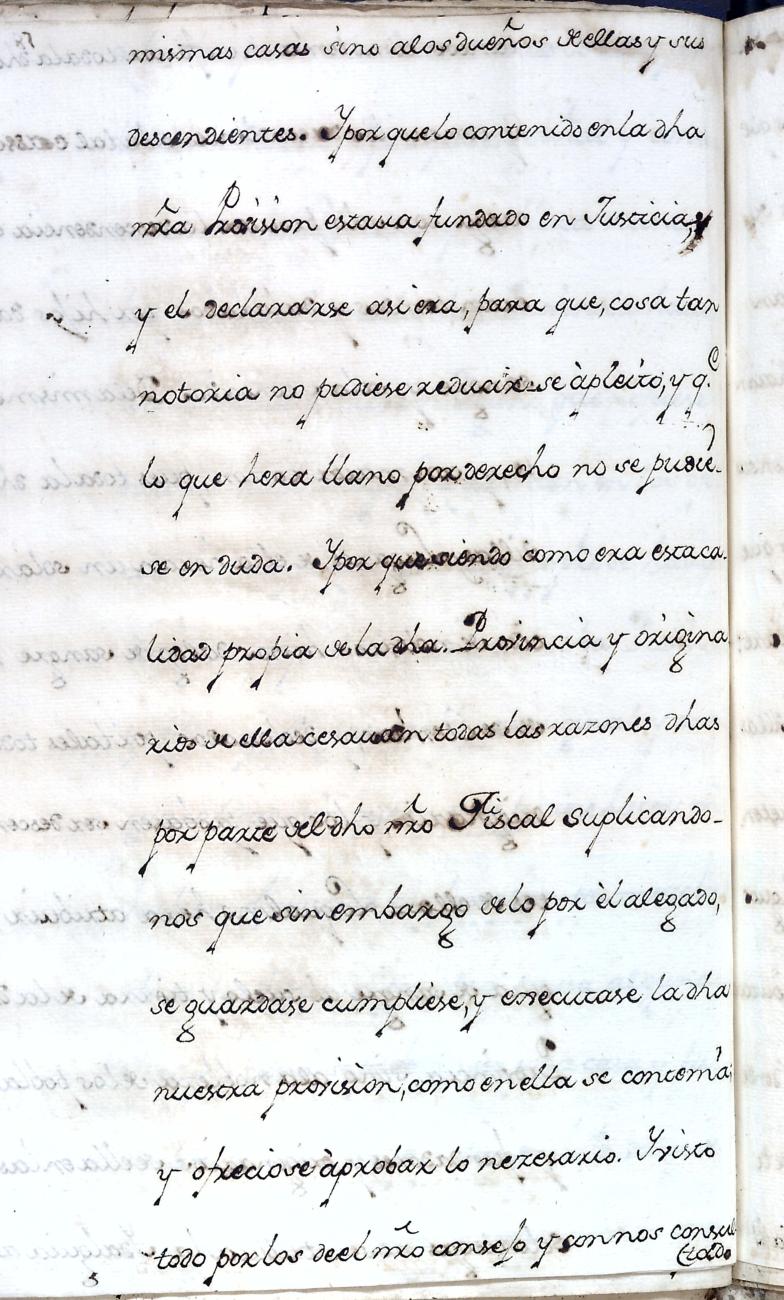 mismas casas sino alos dueños de ellas y sus
descendientes. Y por que lo contenido en la dha
nr̃a Provision estaua fundado en Justicia, y
y el declararse asi era, para que, cosa tan
notoria no pudiese reducir-se à pleito, y q.e
lo que hera llano por derecho no se pusie-
se en duda. Y por que siendo como era esta ca-
lidad propia de la dha. Provincia y origina
rios de ella cesauan todas las razones dhas
por parte del dho nr̃o Fiscal suplicando-
nos que sin embargo de lo por èl alegado,
se guardase cumpliese, y executase la dha
nuestra provision, como en ella se contenia,
y ofreciose à probar lo nezesario. Y visto
todo por los de el nr̃o consejo y con nos consul
tado